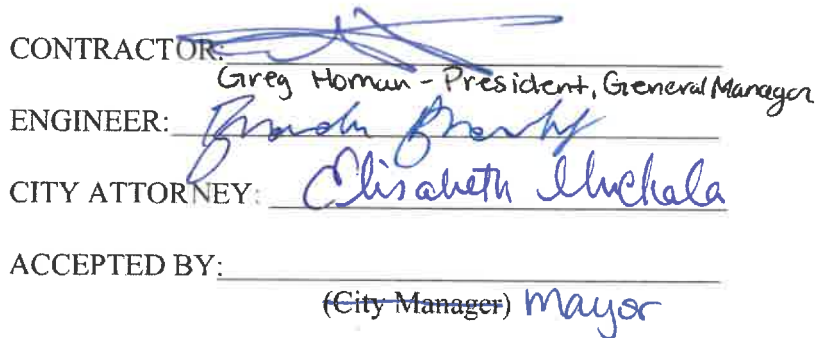 CONTRACTOR:
Greg Homan - President, General Manager
ENGINEER:
CITY ATTORNEY: Elisabeth
ACCEPTED BY:
(City Manager) Mayor